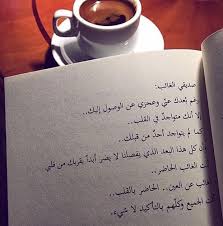 صديقي الغائب:
رغم بُعدك عنّي وعجزي عن الوصول إليك..
إلا أنك متواجدٌ في القلب..
كما لم يتواجد أحدٌ من قبلك..
كل هذا البعد الذي يفصلنا لا يضر أبداً بقربك من قلبي
الغائب الحاضر:
عن العين.. الحاضر بالقلب..
الجميع وكلّهم بالتأكيد لا شيء.